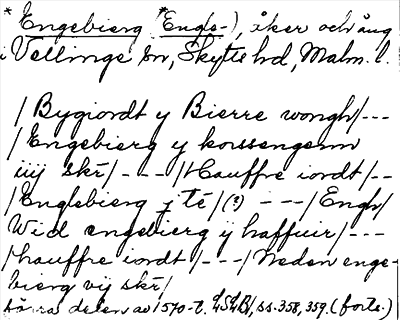 * Engebierg (*Engs-), åker och äng
i Vellinge sn, Skytts hd, Malm. l.
/Bygiordt y Bierre wongh/---
/Engebierg y korssengenn
iiij skr/---/Hauffre iordt/--
/Englebierg y té/(?) ---/Engh/
Wid engebierg y haffuir/---
/hauffre iordt/---/Neden enge-
bierg vij skr/
delen av 1570-t. LSLB/ss. 358, 359. (forts.)